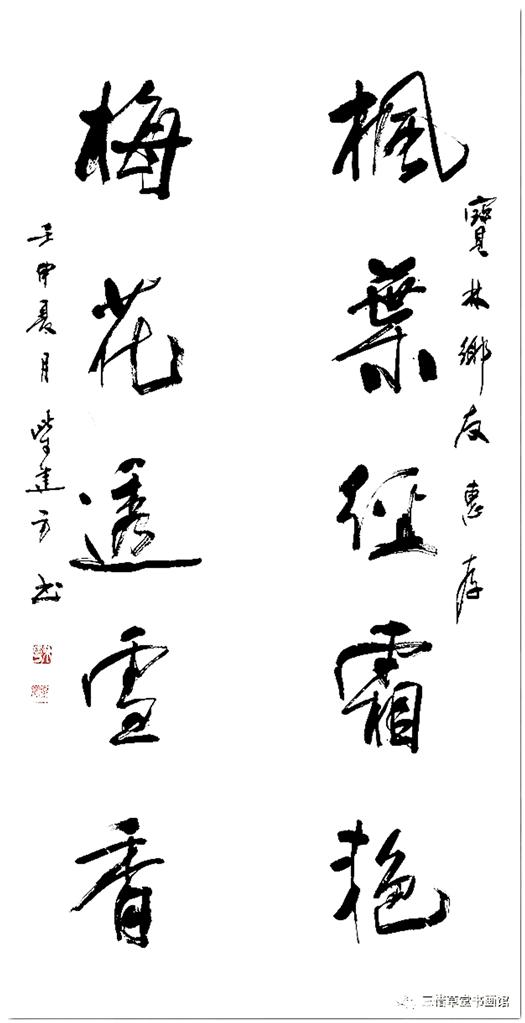 寶林鄉友惠存
楓葉經霜艷
梅花透雪香
壬申夏月柴建方书
三惜草堂书画馆